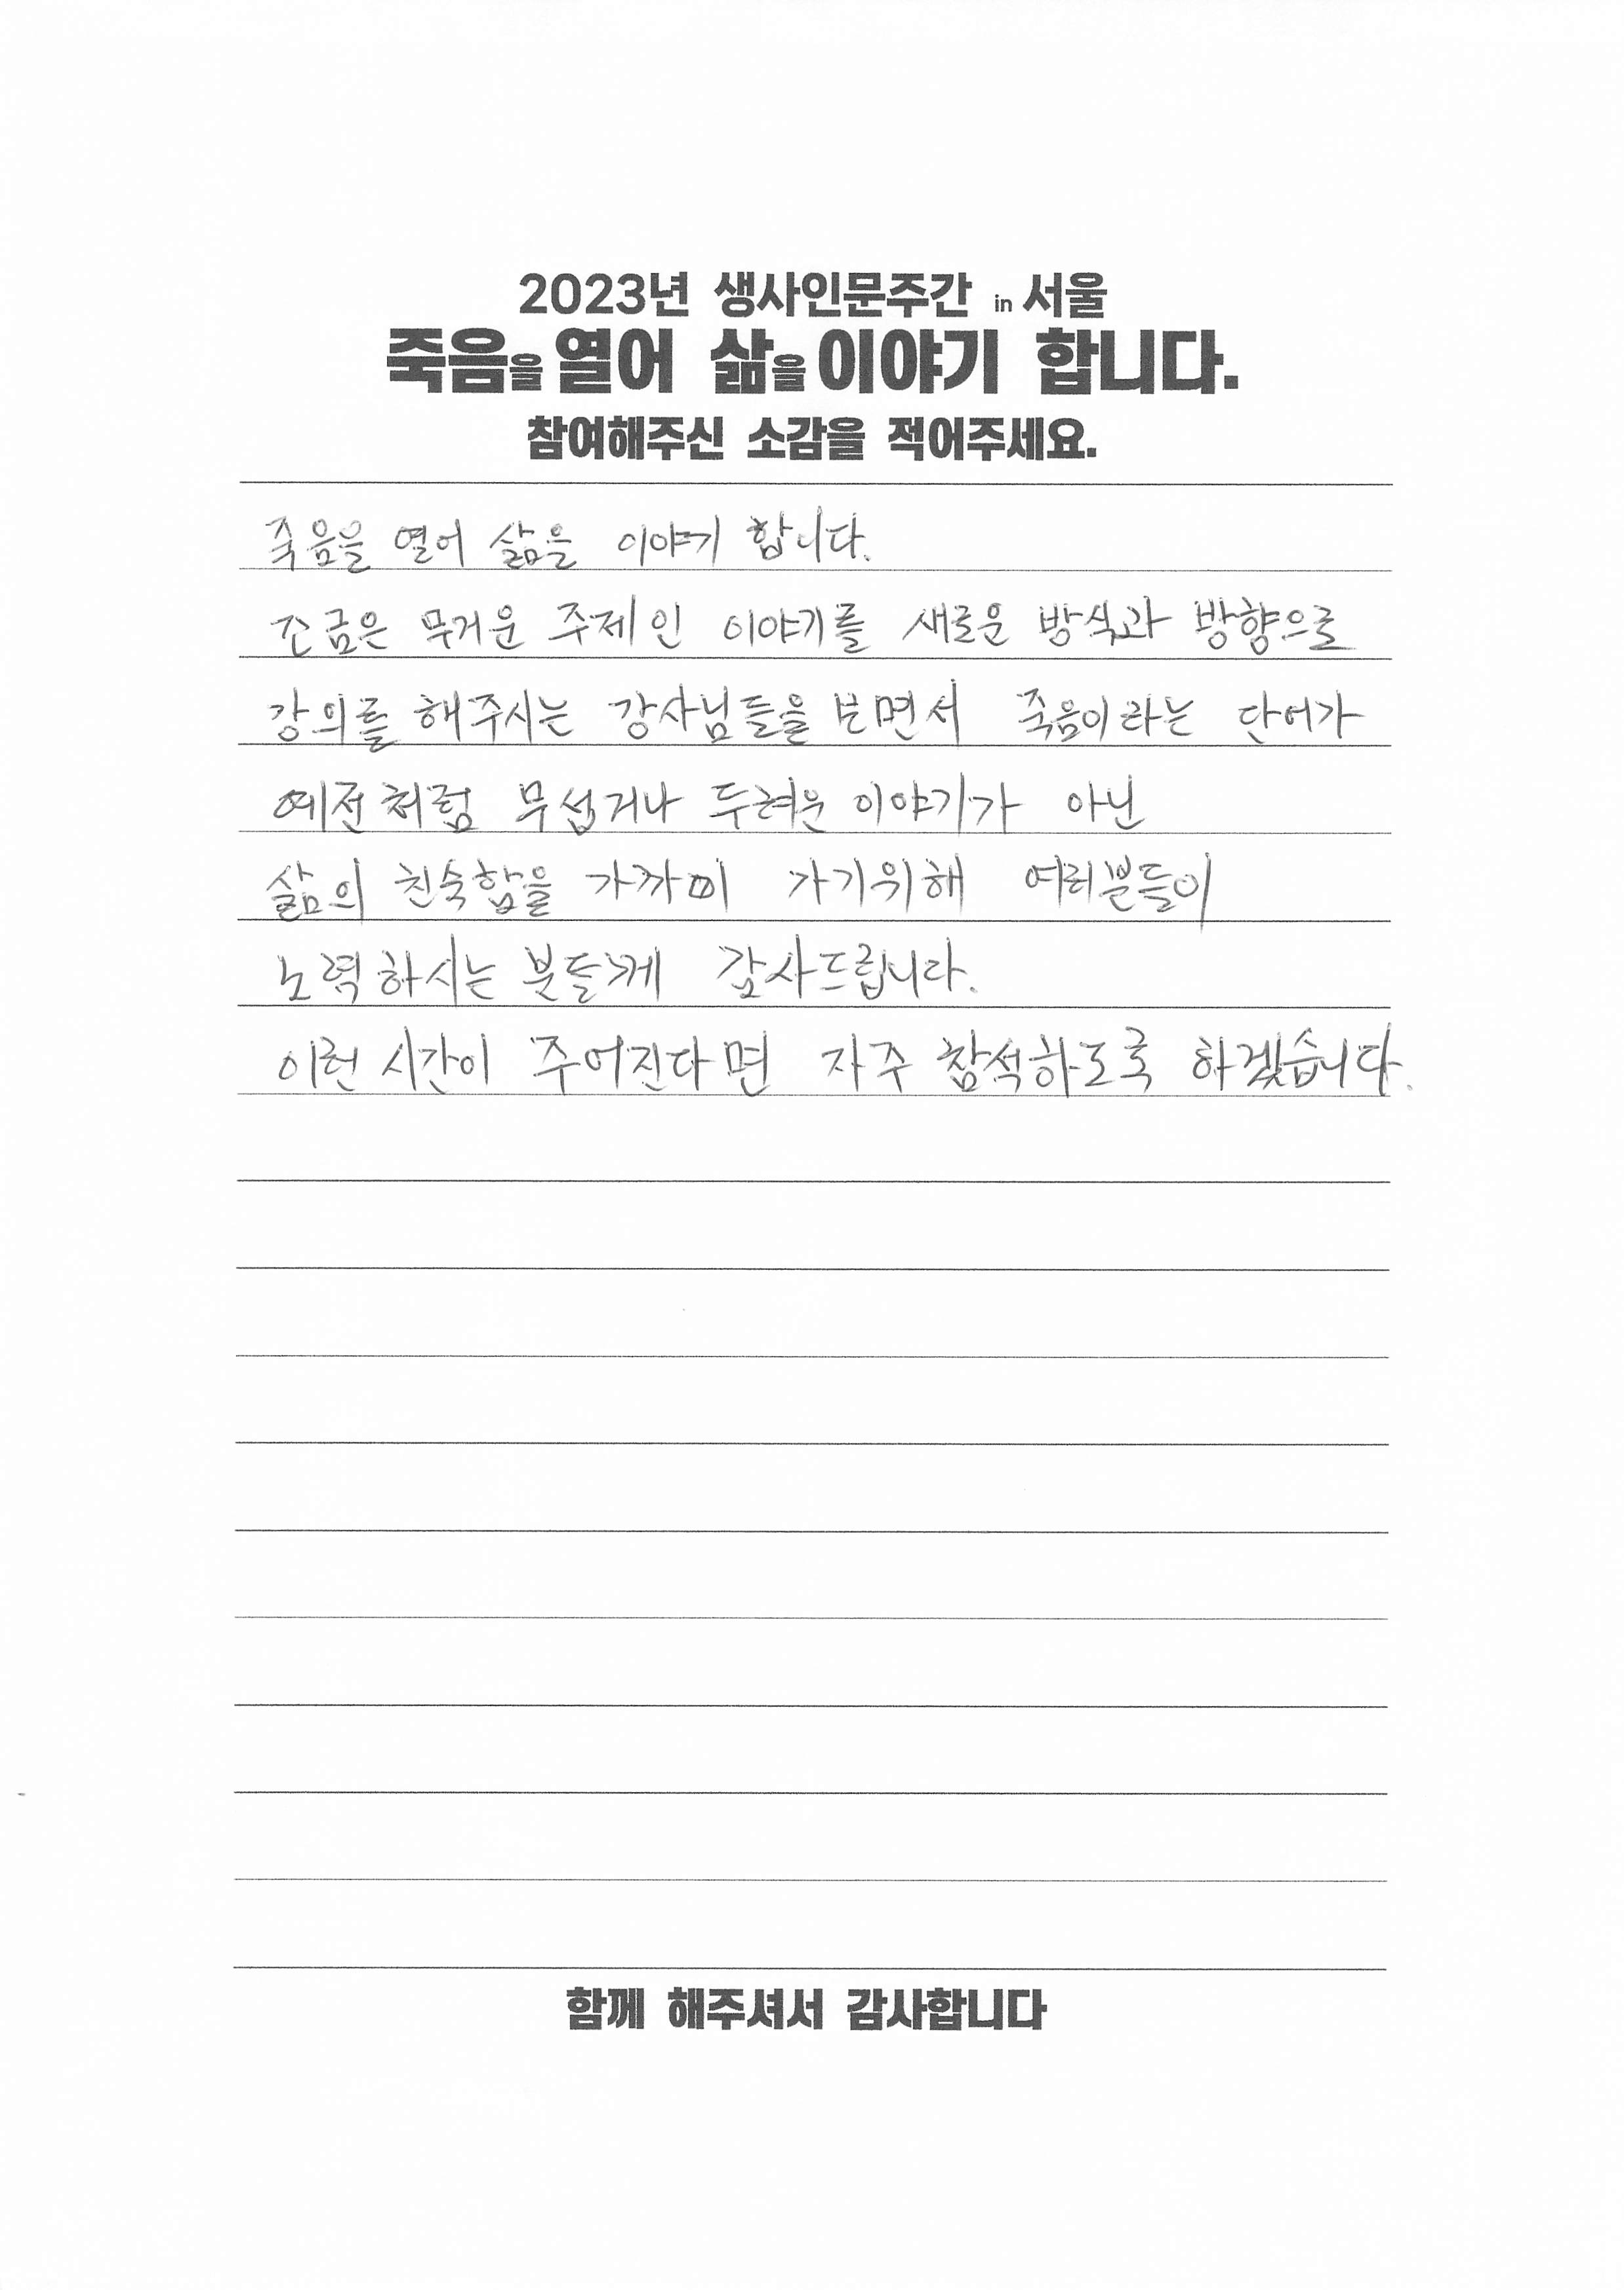 2023년 생사인문주간 in 서울
죽음을 열어 삶을 이야기 합니다.
참여해주신 소감을 적어주세요.
죽음을 열어 삶을 이야기 합니다.
조금은 무거운 주제인 이야기를 새로운 방식과 방향으로
강의를 해주시는 강사님들을 보면서 죽음이라는 단어가
예전처럼 무섭거나 두려운 이야기가 아닌
삶의 친숙함을 가까이 가기위해 여러분들이
노력하시는 분들께 감사드립니다.
이런 시간이 주어진다면 자주 참석하도록 하겠습니다.
함께 해주셔서 감사합니다